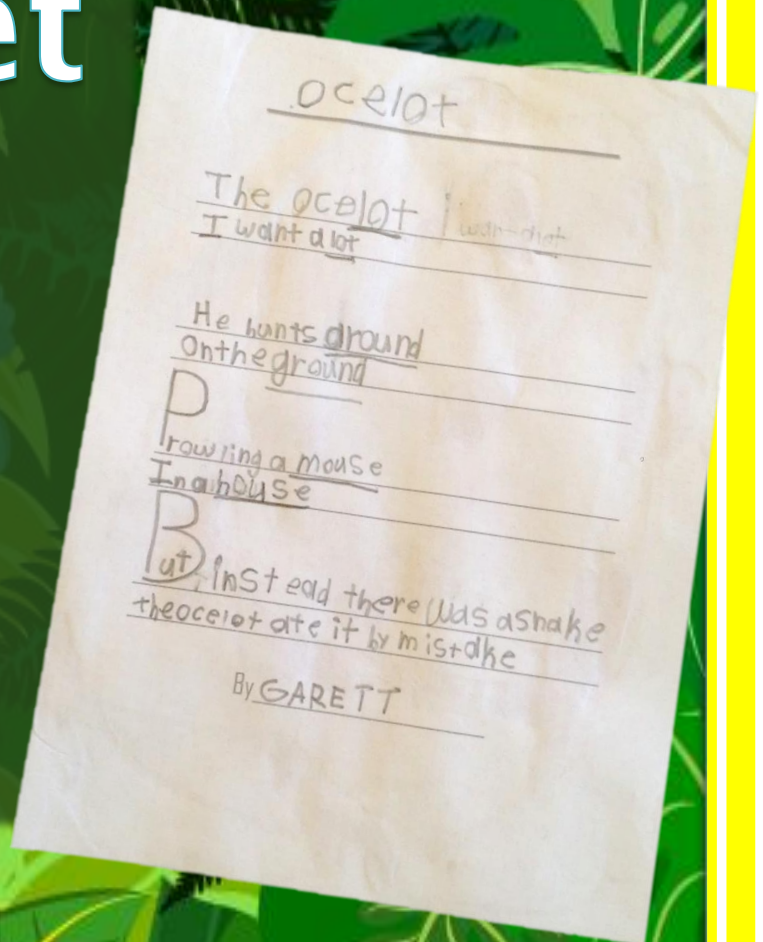 et
ocelot
The ocelot i want alot
I want a lot
He hunts around
On the ground
Prowling a mouse
In a house
But, instead there was a snake
the ocelot ate it by mistake
By GARETT